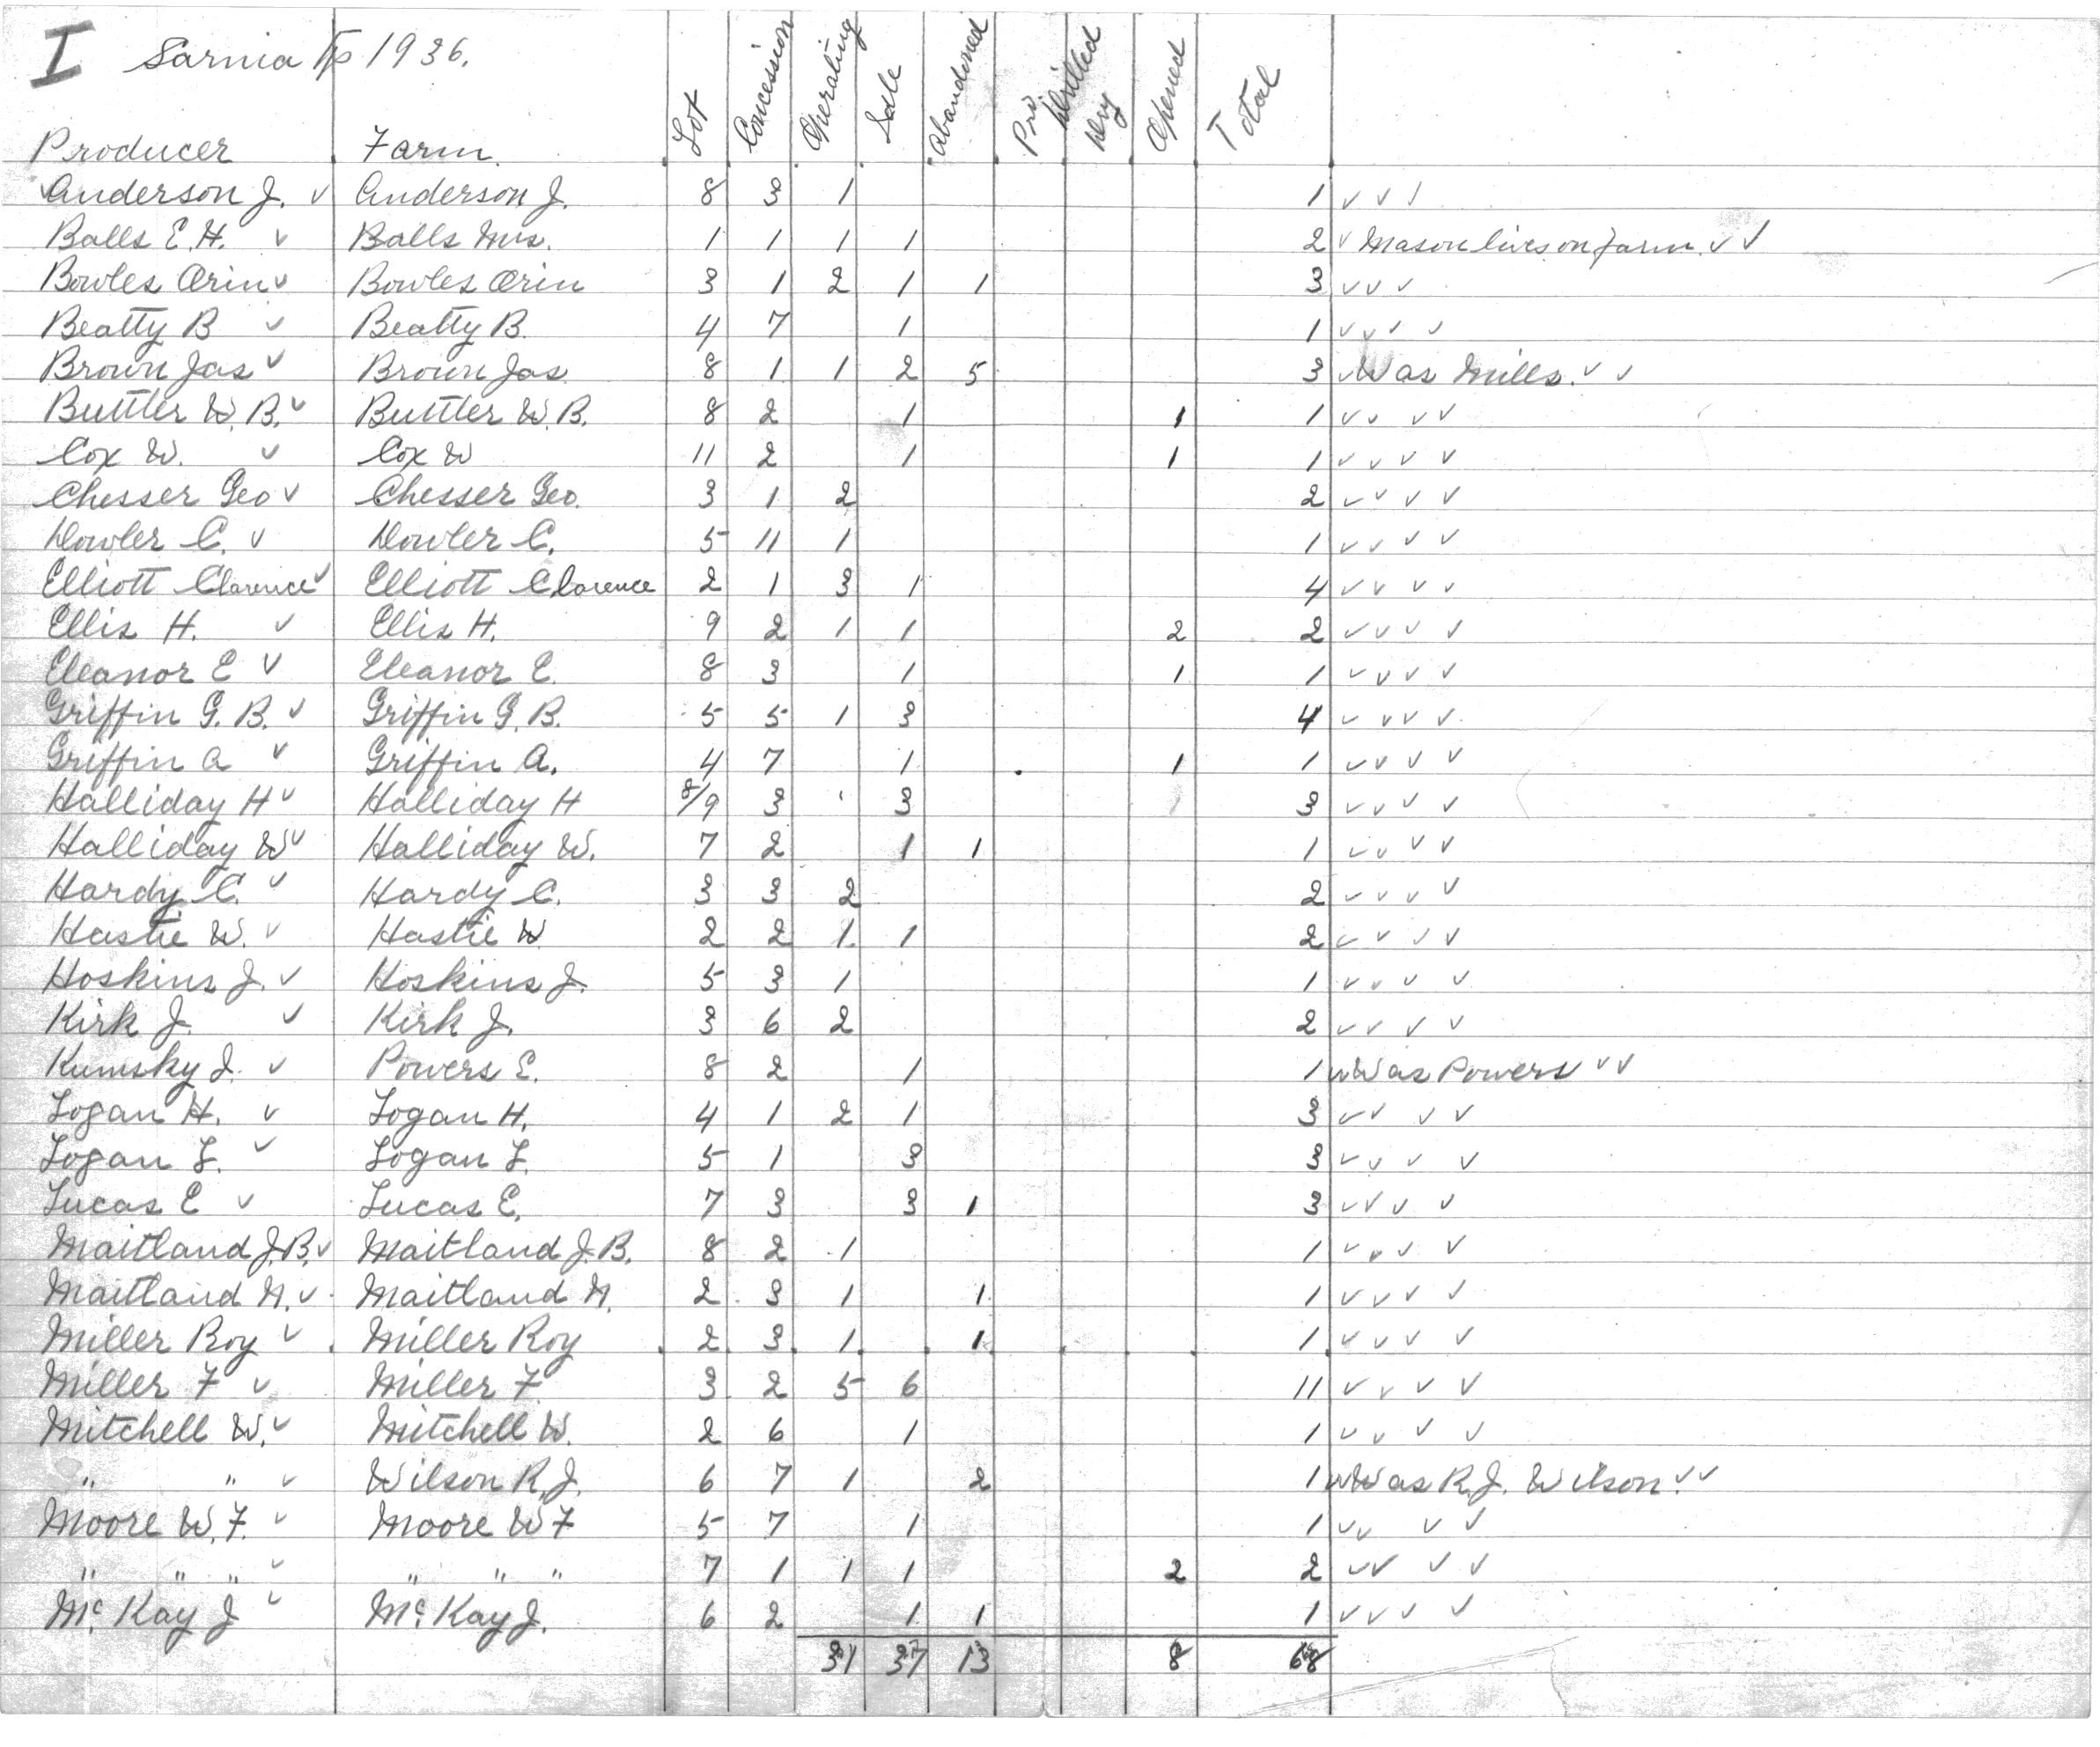 I Sarnia Tp 1936.
Producer Farm. Lot Concession Operating Idle Abandoned Drilled Dry Opened Total
Anderson J. ✓ Anderson J. 8 3 1 1 ✓ ✓ ✓
Balls E.H. ✓ Balls Mrs. 1 1 1 1 2 ✓ Mason lives on farm. ✓ ✓
Bowles Orin ✓ Bowles Orin 3 1 2 1 1 3 ✓ ✓ ✓
Beatty B ✓ Beatty B. 4 7 1 1 ✓ ✓ ✓ ✓
Brown Jas ✓ Brown Jas. 8 1 1 2 5 3 ✓ Was Mills. ✓ ✓
Buttler W.B. ✓ Buttler W.B. 8 2 1 1 1 ✓ ✓ ✓ ✓
Cox W. ✓ Cox W 11 2 1 1 1 ✓ ✓ ✓ ✓
Chesser Geo ✓ Chesser Geo. 3 1 2 2 ✓ ✓ ✓ ✓
Dowler C. ✓ Dowler C. 5 11 1 1 ✓ ✓ ✓ ✓
Elliott Clarence ✓ Elliott Clarence 2 1 3 1 4 ✓ ✓ ✓ ✓
Ellis H. ✓ Ellis H. 9 2 1 1 2 2 ✓ ✓ ✓ ✓
Eleanor E ✓ Eleanor E. 8 3 1 1 1 ✓ ✓ ✓ ✓
Griffin G.B. ✓ Griffin G.B. 5 5 1 3 4 ✓ ✓ ✓ ✓
Griffin A ✓ Griffin A. 4 7 1 1 1 ✓ ✓ ✓ ✓
Halliday H ✓ Halliday H 8/9 3 3 3 ✓ ✓ ✓ ✓
Halliday W ✓ Halliday W. 7 2 1 1 1 ✓ ✓ ✓ ✓
Hardy C. ✓ Hardy C. 3 3 2 2 ✓ ✓ ✓ ✓
Hastie W. ✓ Hastie W 2 2 1 1 2 ✓ ✓ ✓ ✓
Hoskins J. ✓ Hoskins J. 5 3 1 1 ✓ ✓ ✓ ✓
Kirk J. ✓ Kirk J. 3 6 2 2 ✓ ✓ ✓ ✓
Kumsky J. ✓ Powers E. 8 2 1 1 ✓ Was Powers ✓ ✓
Logan H. ✓ Logan H. 4 1 2 1 3 ✓ ✓ ✓ ✓
Logan L. ✓ Logan L. 5 1 3 3 ✓ ✓ ✓ ✓
Lucas E ✓ Lucas E. 7 3 3 1 3 ✓ ✓ ✓ ✓
Maitland J.B. ✓ Maitland J.B. 8 2 1 1 ✓ ✓ ✓ ✓
Maitland N. ✓ Maitland N. 2 3 1 1 1 ✓ ✓ ✓ ✓
Miller Roy ✓ Miller Roy 2 3 1 1 1 ✓ ✓ ✓ ✓
Miller F ✓ Miller F 3 2 5 6 11 ✓ ✓ ✓ ✓
Mitchell W. ✓ Mitchell W. 2 6 1 1 ✓ ✓ ✓ ✓
" " ✓ Wilson R.J. 6 7 1 2 1 ✓ Was R.J. Wilson. ✓ ✓
Moore W.F. ✓ Moore W F 5 7 1 1 ✓ ✓ ✓ ✓
" " " ✓ " " " 7 1 1 1 2 2 ✓ ✓ ✓ ✓
McKay J ✓ McKay J. 6 2 1 1 1 ✓ ✓ ✓ ✓
31 37 13 8 68